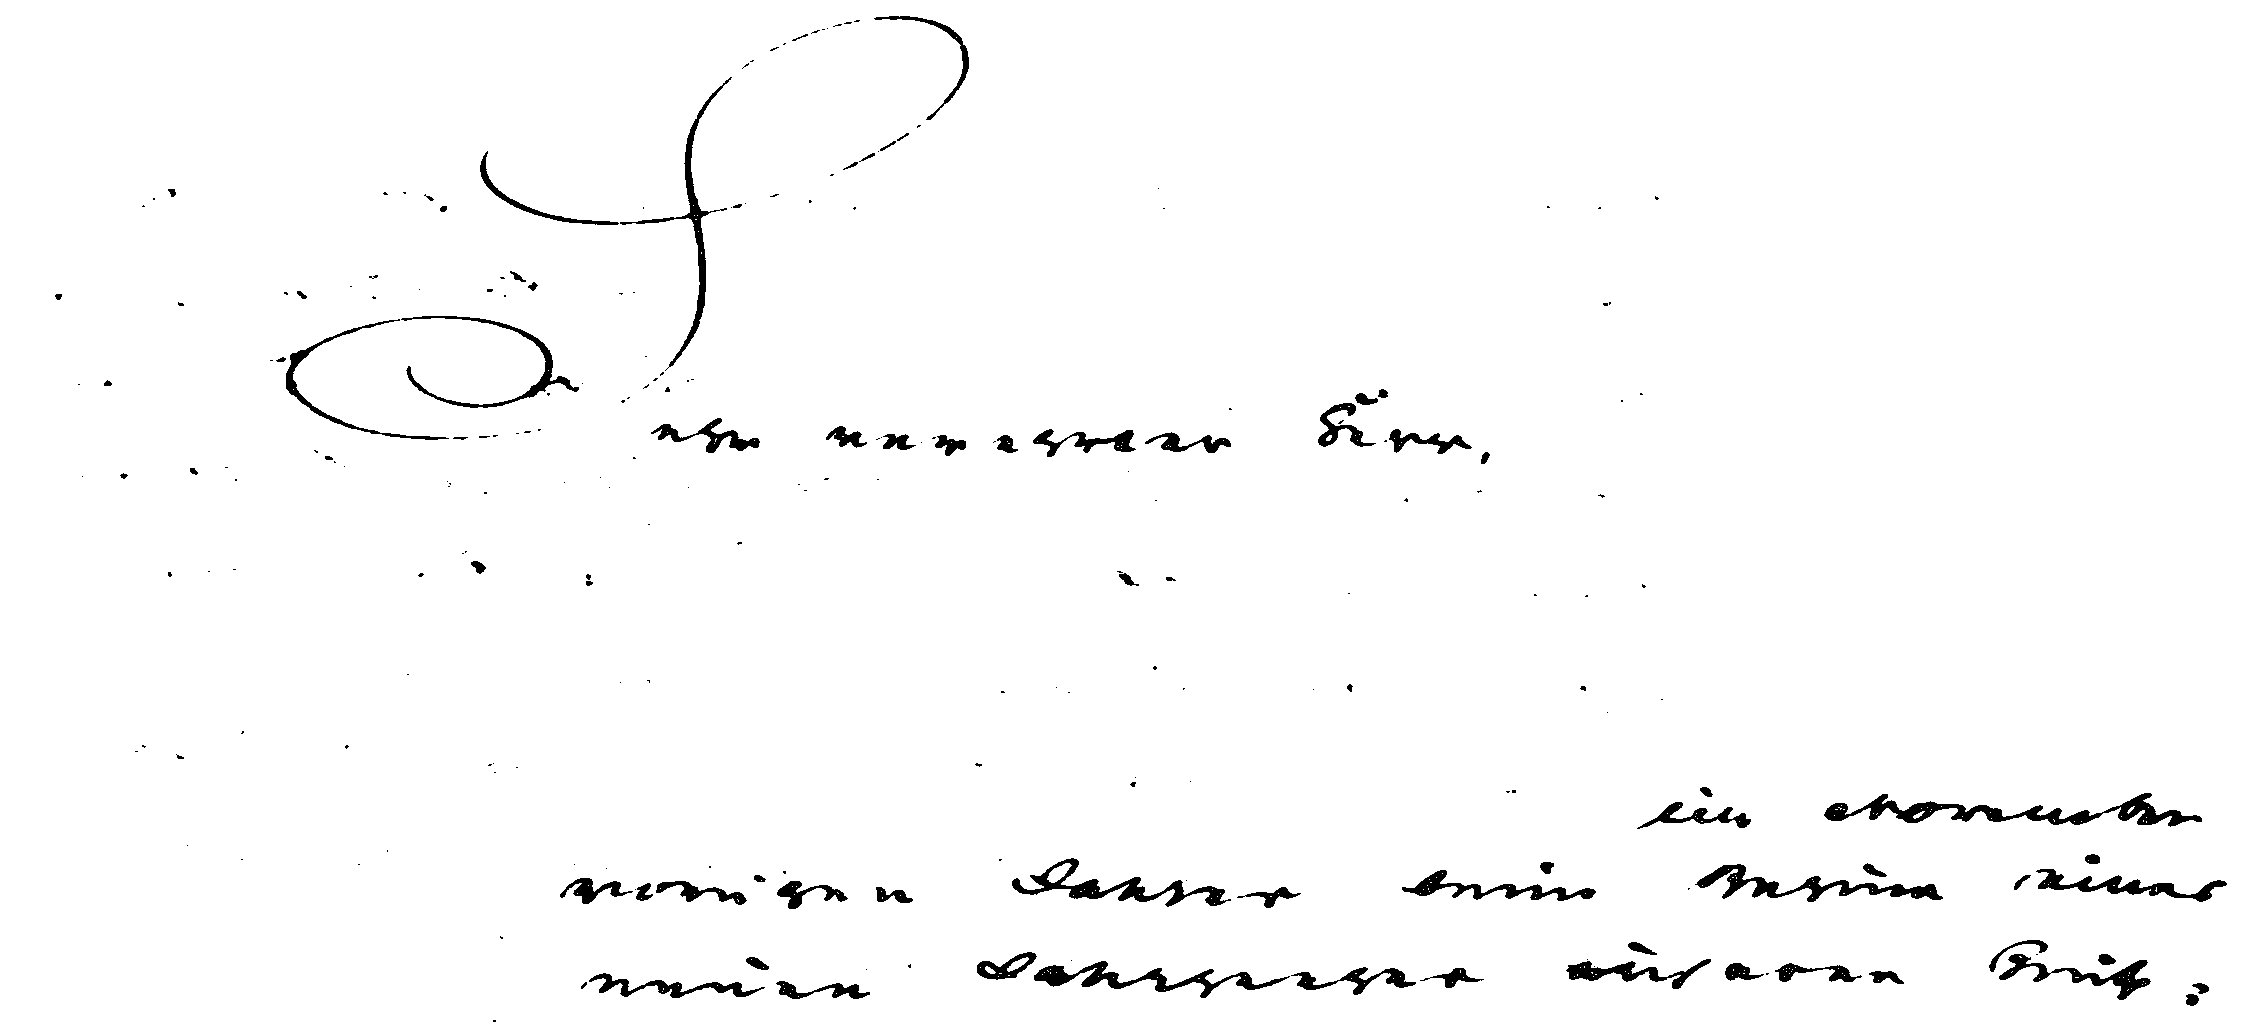 Sehr verehrter Herr,
im November
vorigen Jahres beim Beginn eines
neuen Jahrganges unserer Zeit-